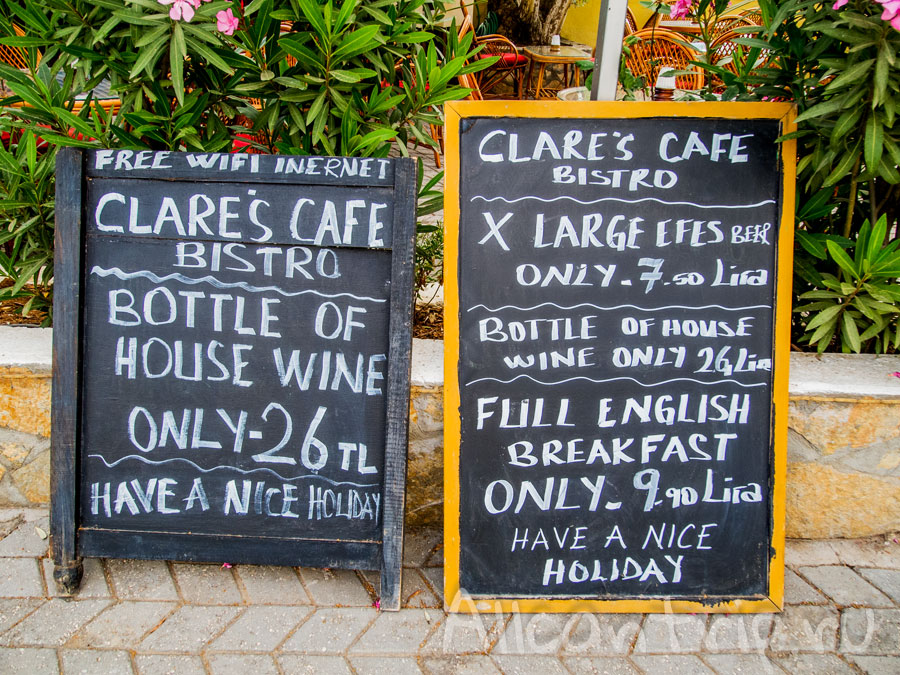 FREE WIFI INERNET
CLARE'S CAFE
BISTRO
BOTTLE OF
HOUSE WINE
ONLY-26 TL
HAVE A NICE HOLIDAY
CLARE'S CAFE
BISTRO
X LARGE EFES BEER
ONLY-7.50 Lira
BOTTLE OF HOUSE
WINE ONLY 26, Lira
FULL ENGLISH
BREAKFAST
ONLY-9.90 Lira
HAVE A NICE
HOLIDAY
Allcantrip.ru